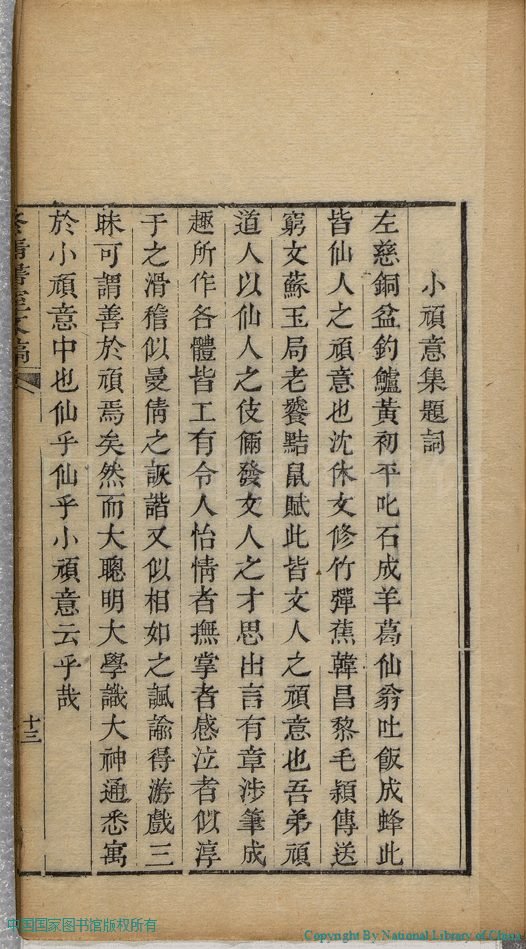 小頑意集題詞
左慈銅盆釣鱸黃初平叱石成羊葛仙翁吐飯成蜂此
皆仙人之頑意也沈休文修竹彈蕉韓昌黎毛穎傳送
窮文蘇玉局老饕黠鼠賦此皆文人之頑意也吾弟頑
道人以仙人之伎倆發文人之才思出言有章涉筆成
趣所作各體皆工有令人怡情者撫掌者感泣者似淳
于之滑稽似曼倩之詼諧又似相如之諷諭得游戲三
昧可謂善於頑焉矣然而大聰明大學識大神通悉寓
於小頑意中也仙乎仙乎小頑意云乎哉
十三
中国国家图书馆版权所有
Copyright By National Library of China